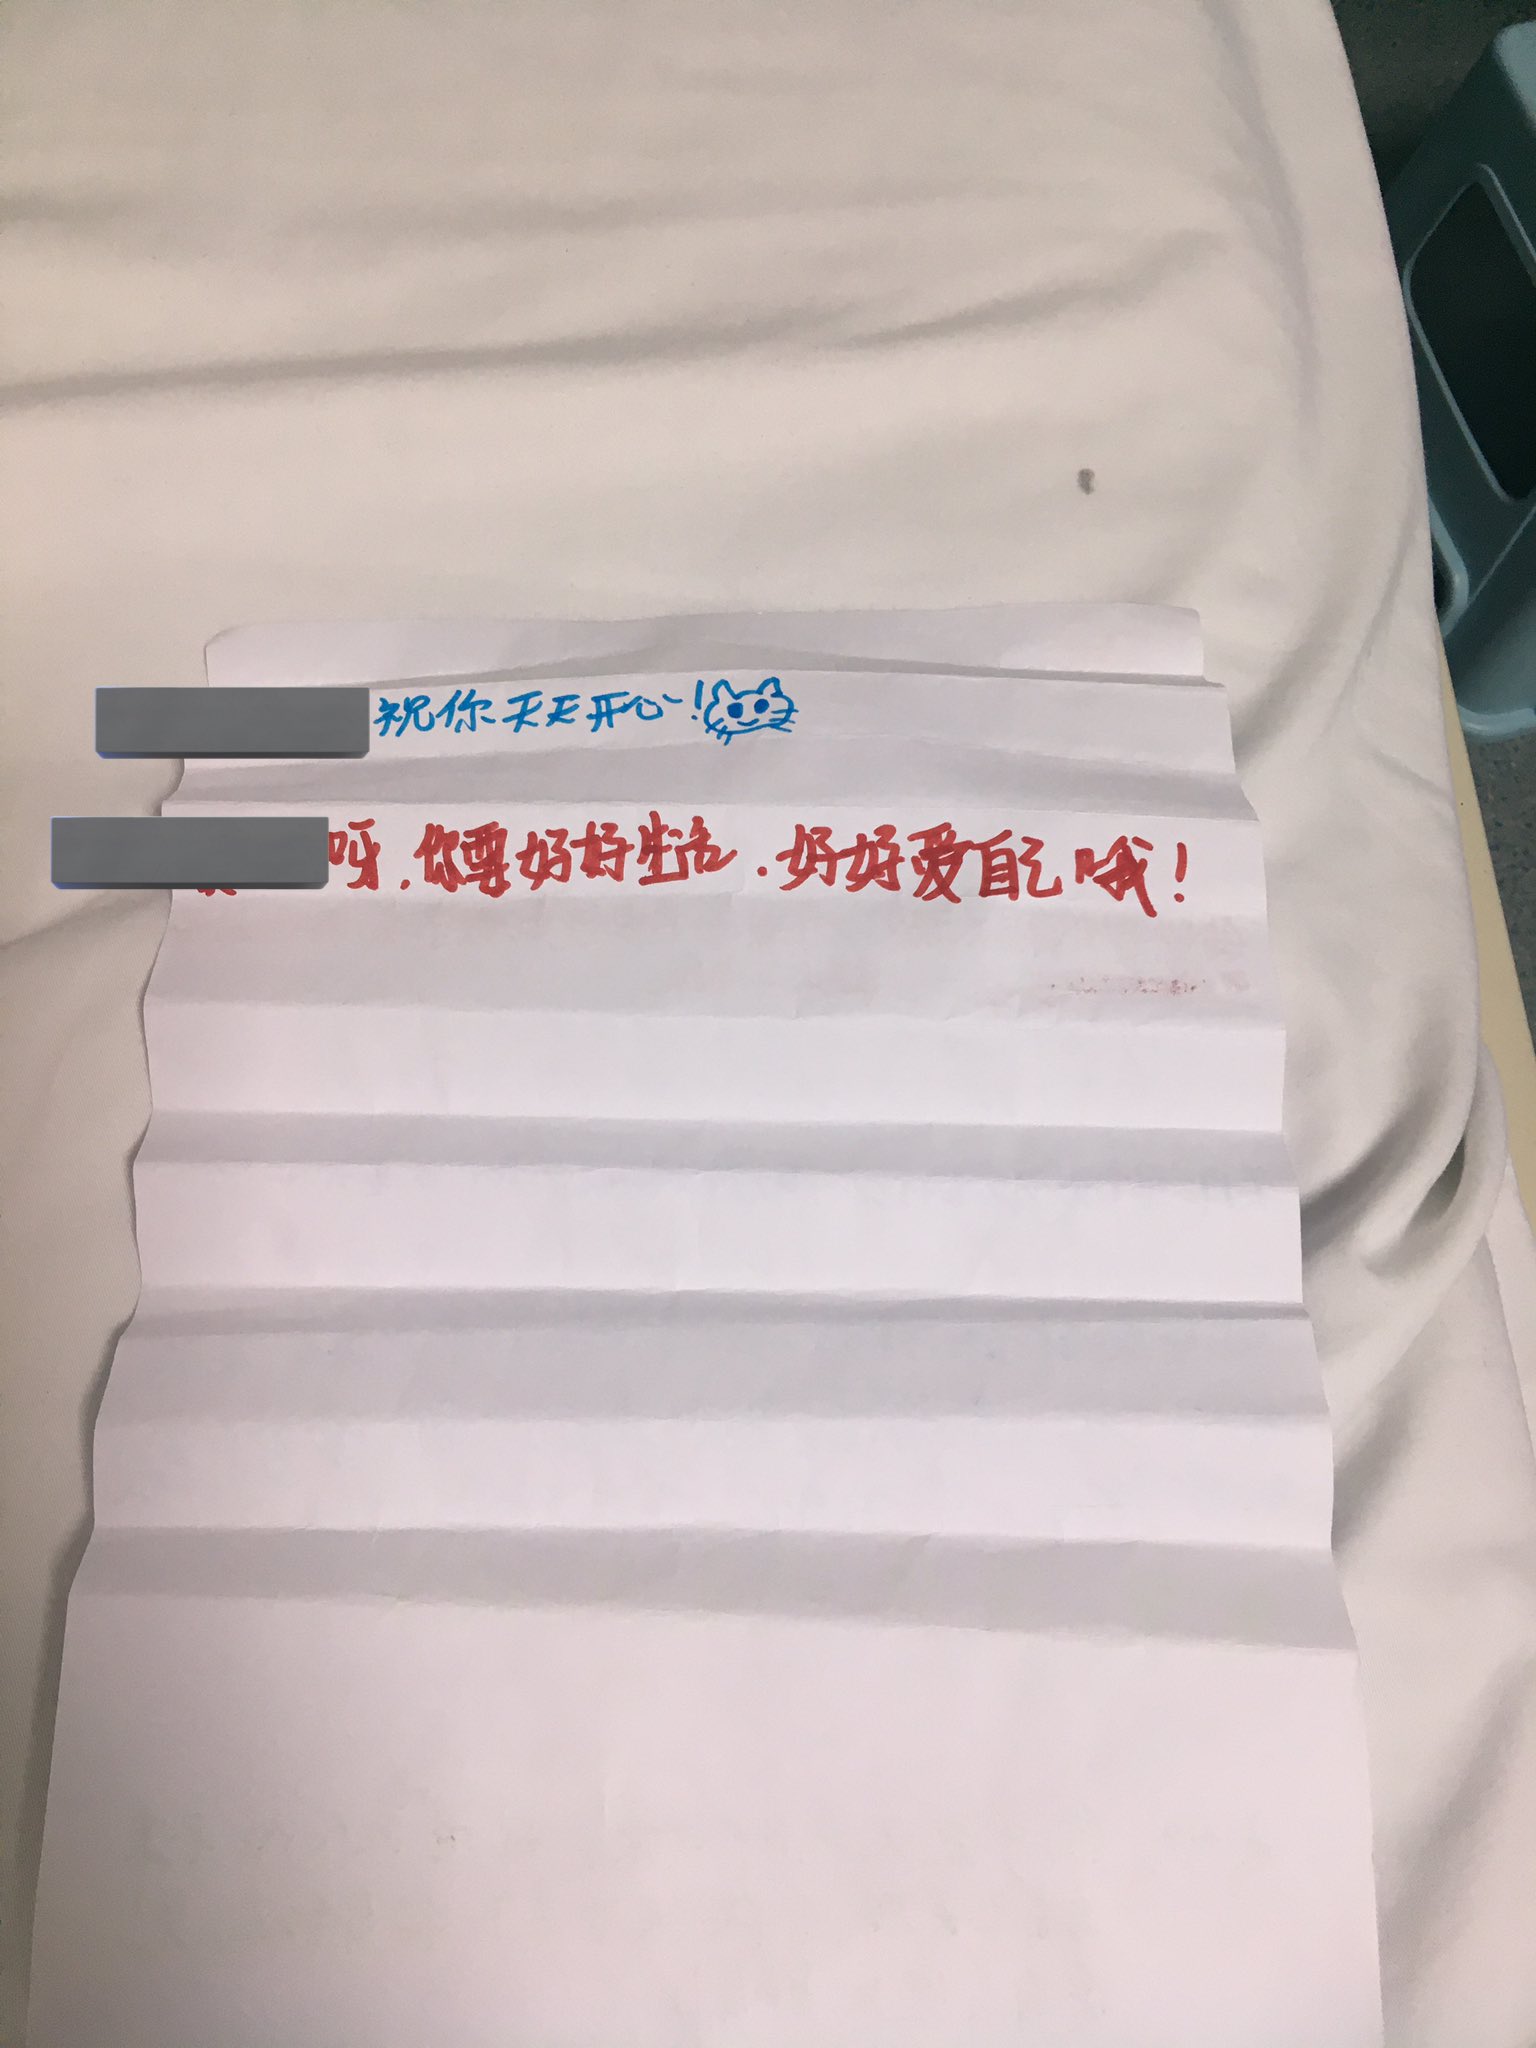 祝你天天开心~!
呀,你要好好生活.好好爱自己哦!